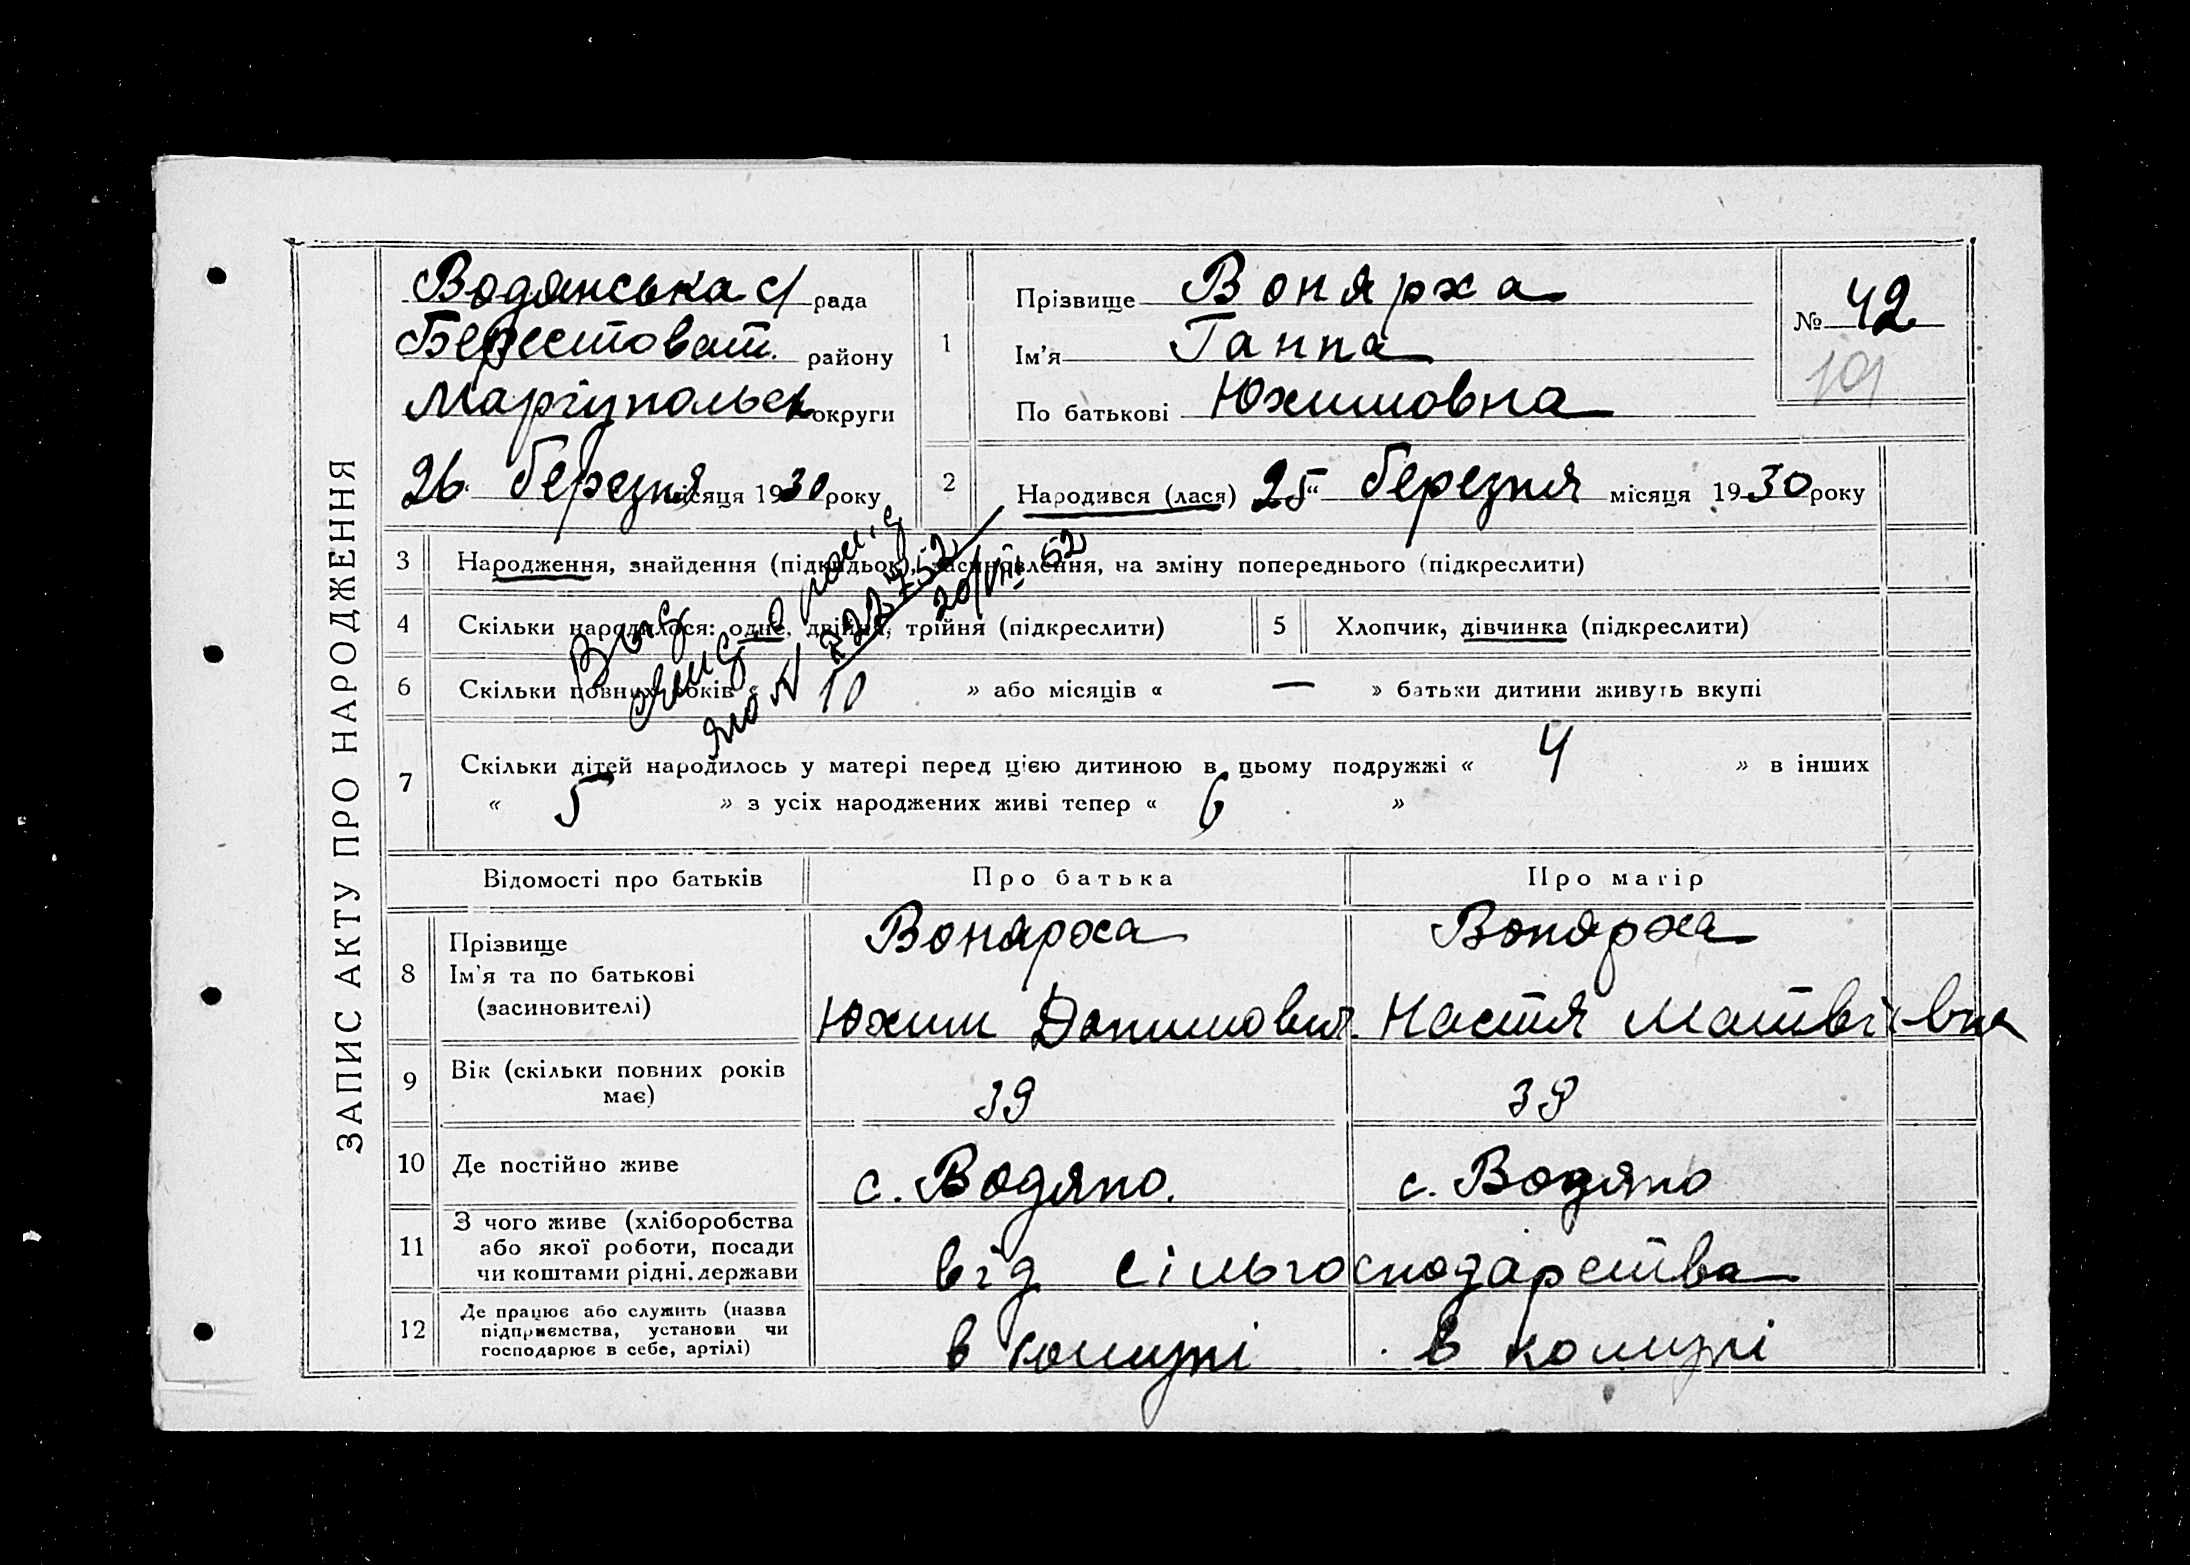 ЗАПИС АКТУ ПРО НАРОДЖЕННЯ
Водянська с/ рада
Берестоват. району
Маріупольськ округи
26 березня місяця 1930 року
1
Прізвище Вонярха
Ім'я Ганна
По батькові Юхимовна
№ 42
101
2
Народився (лася) 25 березня місяця 1930 року
3 Народження, знайдення (підкидьок), засиновлення, на зміну попереднього (підкреслити)
4 Скільки народилося: одне, двійня, трійня (підкреслити)
5 Хлопчик, дівчинка (підкреслити)
6 Скільки повних років « 10 » або місяців « — » батьки дитини живуть вкупі
20/VIII 52
7 Скільки дітей народилось у матері перед цією дитиною в цьому подружжі « 4 » в інших
« 5 » з усіх народжених живі тепер « 6 »
Відомості про батьків Про батька Про матір
8 Прізвище
Ім'я та по батькові
(засиновителі)
Вонярха
Юхим
Вонярха
Настя Матвієвна
9 Вік (скільки повних років
має)
39
39
10 Де постійно живе с. Водяно. с. Водяно
11 З чого живе (хліборобства
або якої роботи, посади
чи коштами рідні, держави
від сільгосподарства
12 Де працює або служить (назва
підприємства, установи чи
господарює в себе, артілі)
в комуні в комуні